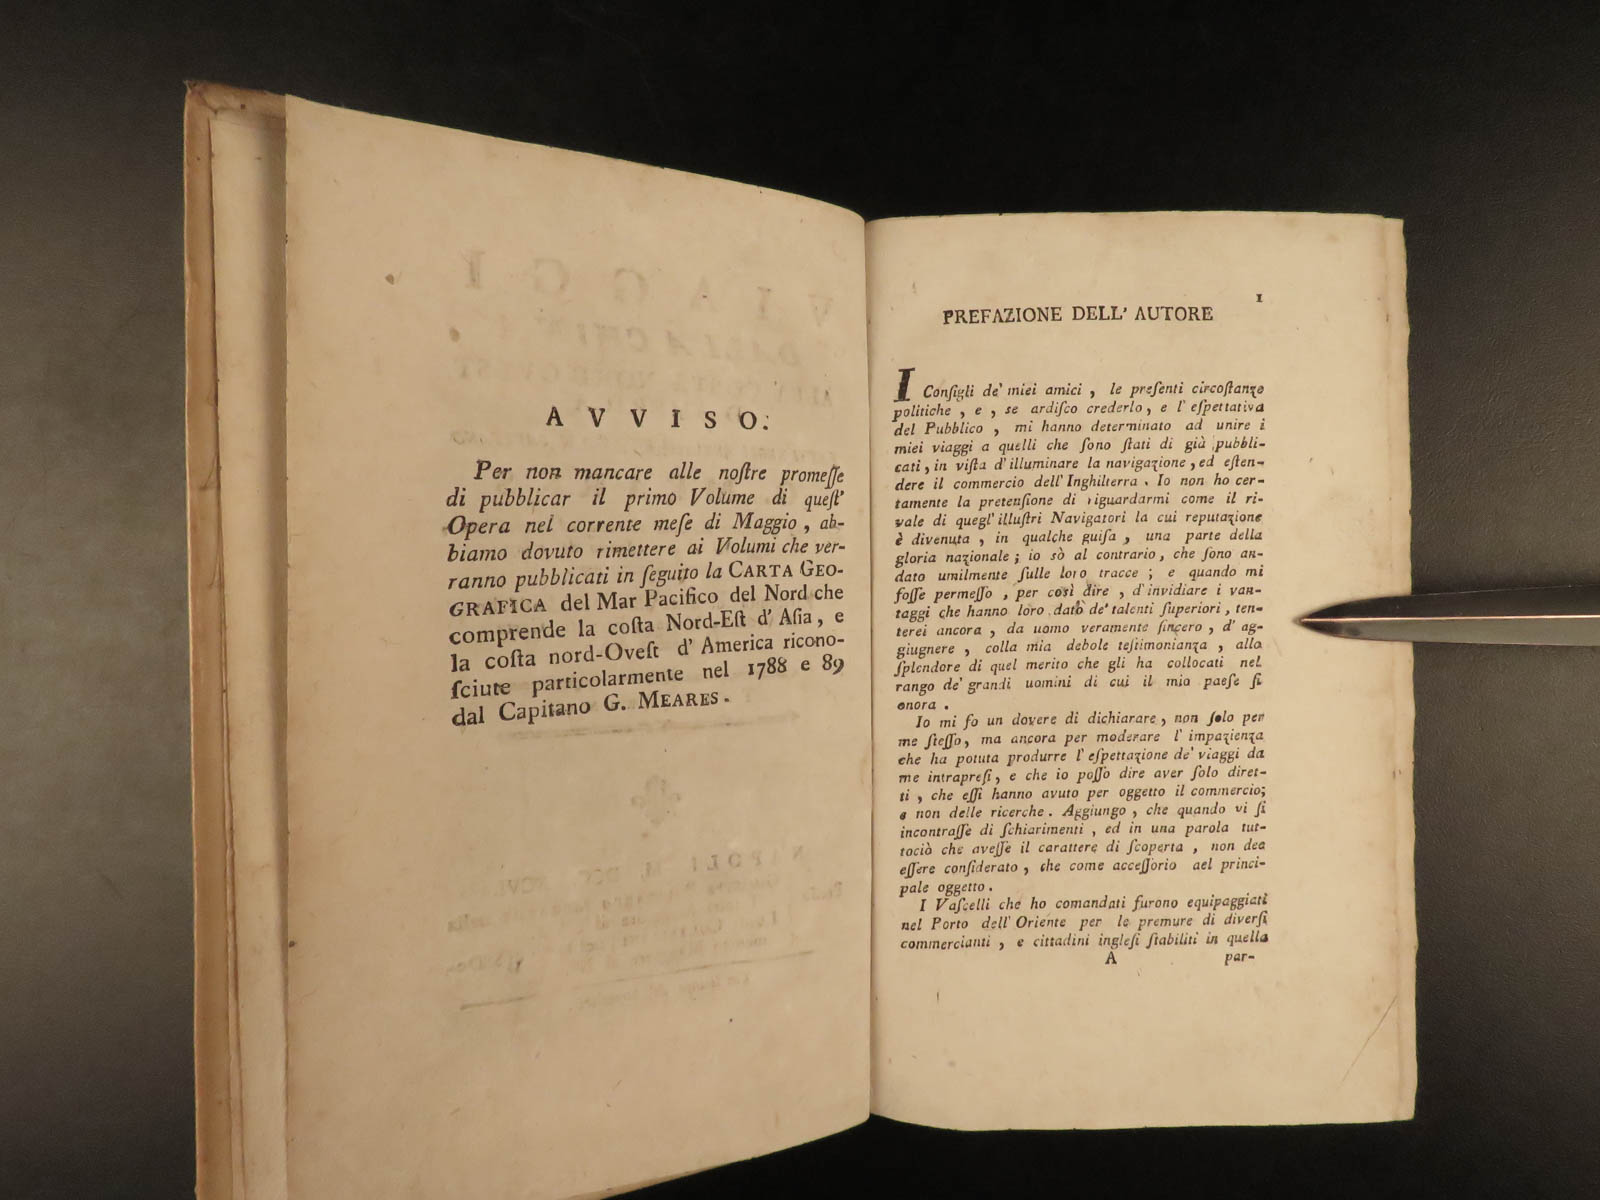 A V V I S O.
Per non mancare alle noſtre promeſſe
di pubblicar il primo Volume di queſt'
Opera nel corrente meſe di Maggio, ab-
biamo dovuto rimettere ai Volumi che ver-
ranno pubblicati in ſeguito la CARTA GEO-
GRAFICA del Mar Pacifico del Nord che
comprende la coſta Nord-Eſt d' Aſia, e
la coſta nord-Oveſt d' America ricono-
ſciute particolarmente nel 1788 e 89
dal Capitano G. MEARES.
1
PREFAZIONE DELL' AUTORE
I Conſigli de' miei amici, le preſenti circoſtanze
politiche, e, se ardiſco crederlo, e l' eſpettativa
del Pubblico, mi hanno determinato ad unire i
miei viaggi a quelli che ſono ſtati di già pubbli-
cati, in viſta d'illuminare la navigazione, ed eſten-
dere il commercio dell'Inghilterra. Io non ho cer-
tamente la pretenſione di riguardarmi come il ri-
vale di quegl'illuſtri Navigatori la cui reputazione
è divenuta, in qualche guiſa, una parte della
gloria nazionale; io sò al contrario, che ſono an-
dato umilmente ſulle loro tracce; e quando mi
foſſe permeſſo, per così dire, d'invidiare i van-
taggi che hanno loro dato de' talenti ſuperiori, ten-
terei ancora, da uomo veramente ſincero, d' ag-
giugnere, colla mia debole teſtimonianza, allo
ſplendore di quel merito che gli ha collocati nel
rango de' grandi uomini di cui il mio paeſe ſi
onora.
Io mi fo un dovere di dichiarare, non ſolo per
me ſteſſo, ma ancora per moderare l' impazienza
che ha potuta produrre l' eſpettazione de' viaggi da
me intrapreſi, e che io poſſo dire aver ſolo diret-
ti, che eſſi hanno avuto per oggetto il commercio;
e non delle ricerche. Aggiungo, che quando vi ſi
incontraſſe di ſchiarimenti, ed in una parola tut-
tociò che aveſſe il carattere di ſcoperta, non dee
eſſere conſiderato, che come acceſſorio ael princi-
pale oggetto.
I Vaſcelli che ho comandati furono equipaggiati
nel Porto dell' Oriente per le premure di diverſi
commercianti, e cittadini ingleſi ſtabiliti in quella
A par-